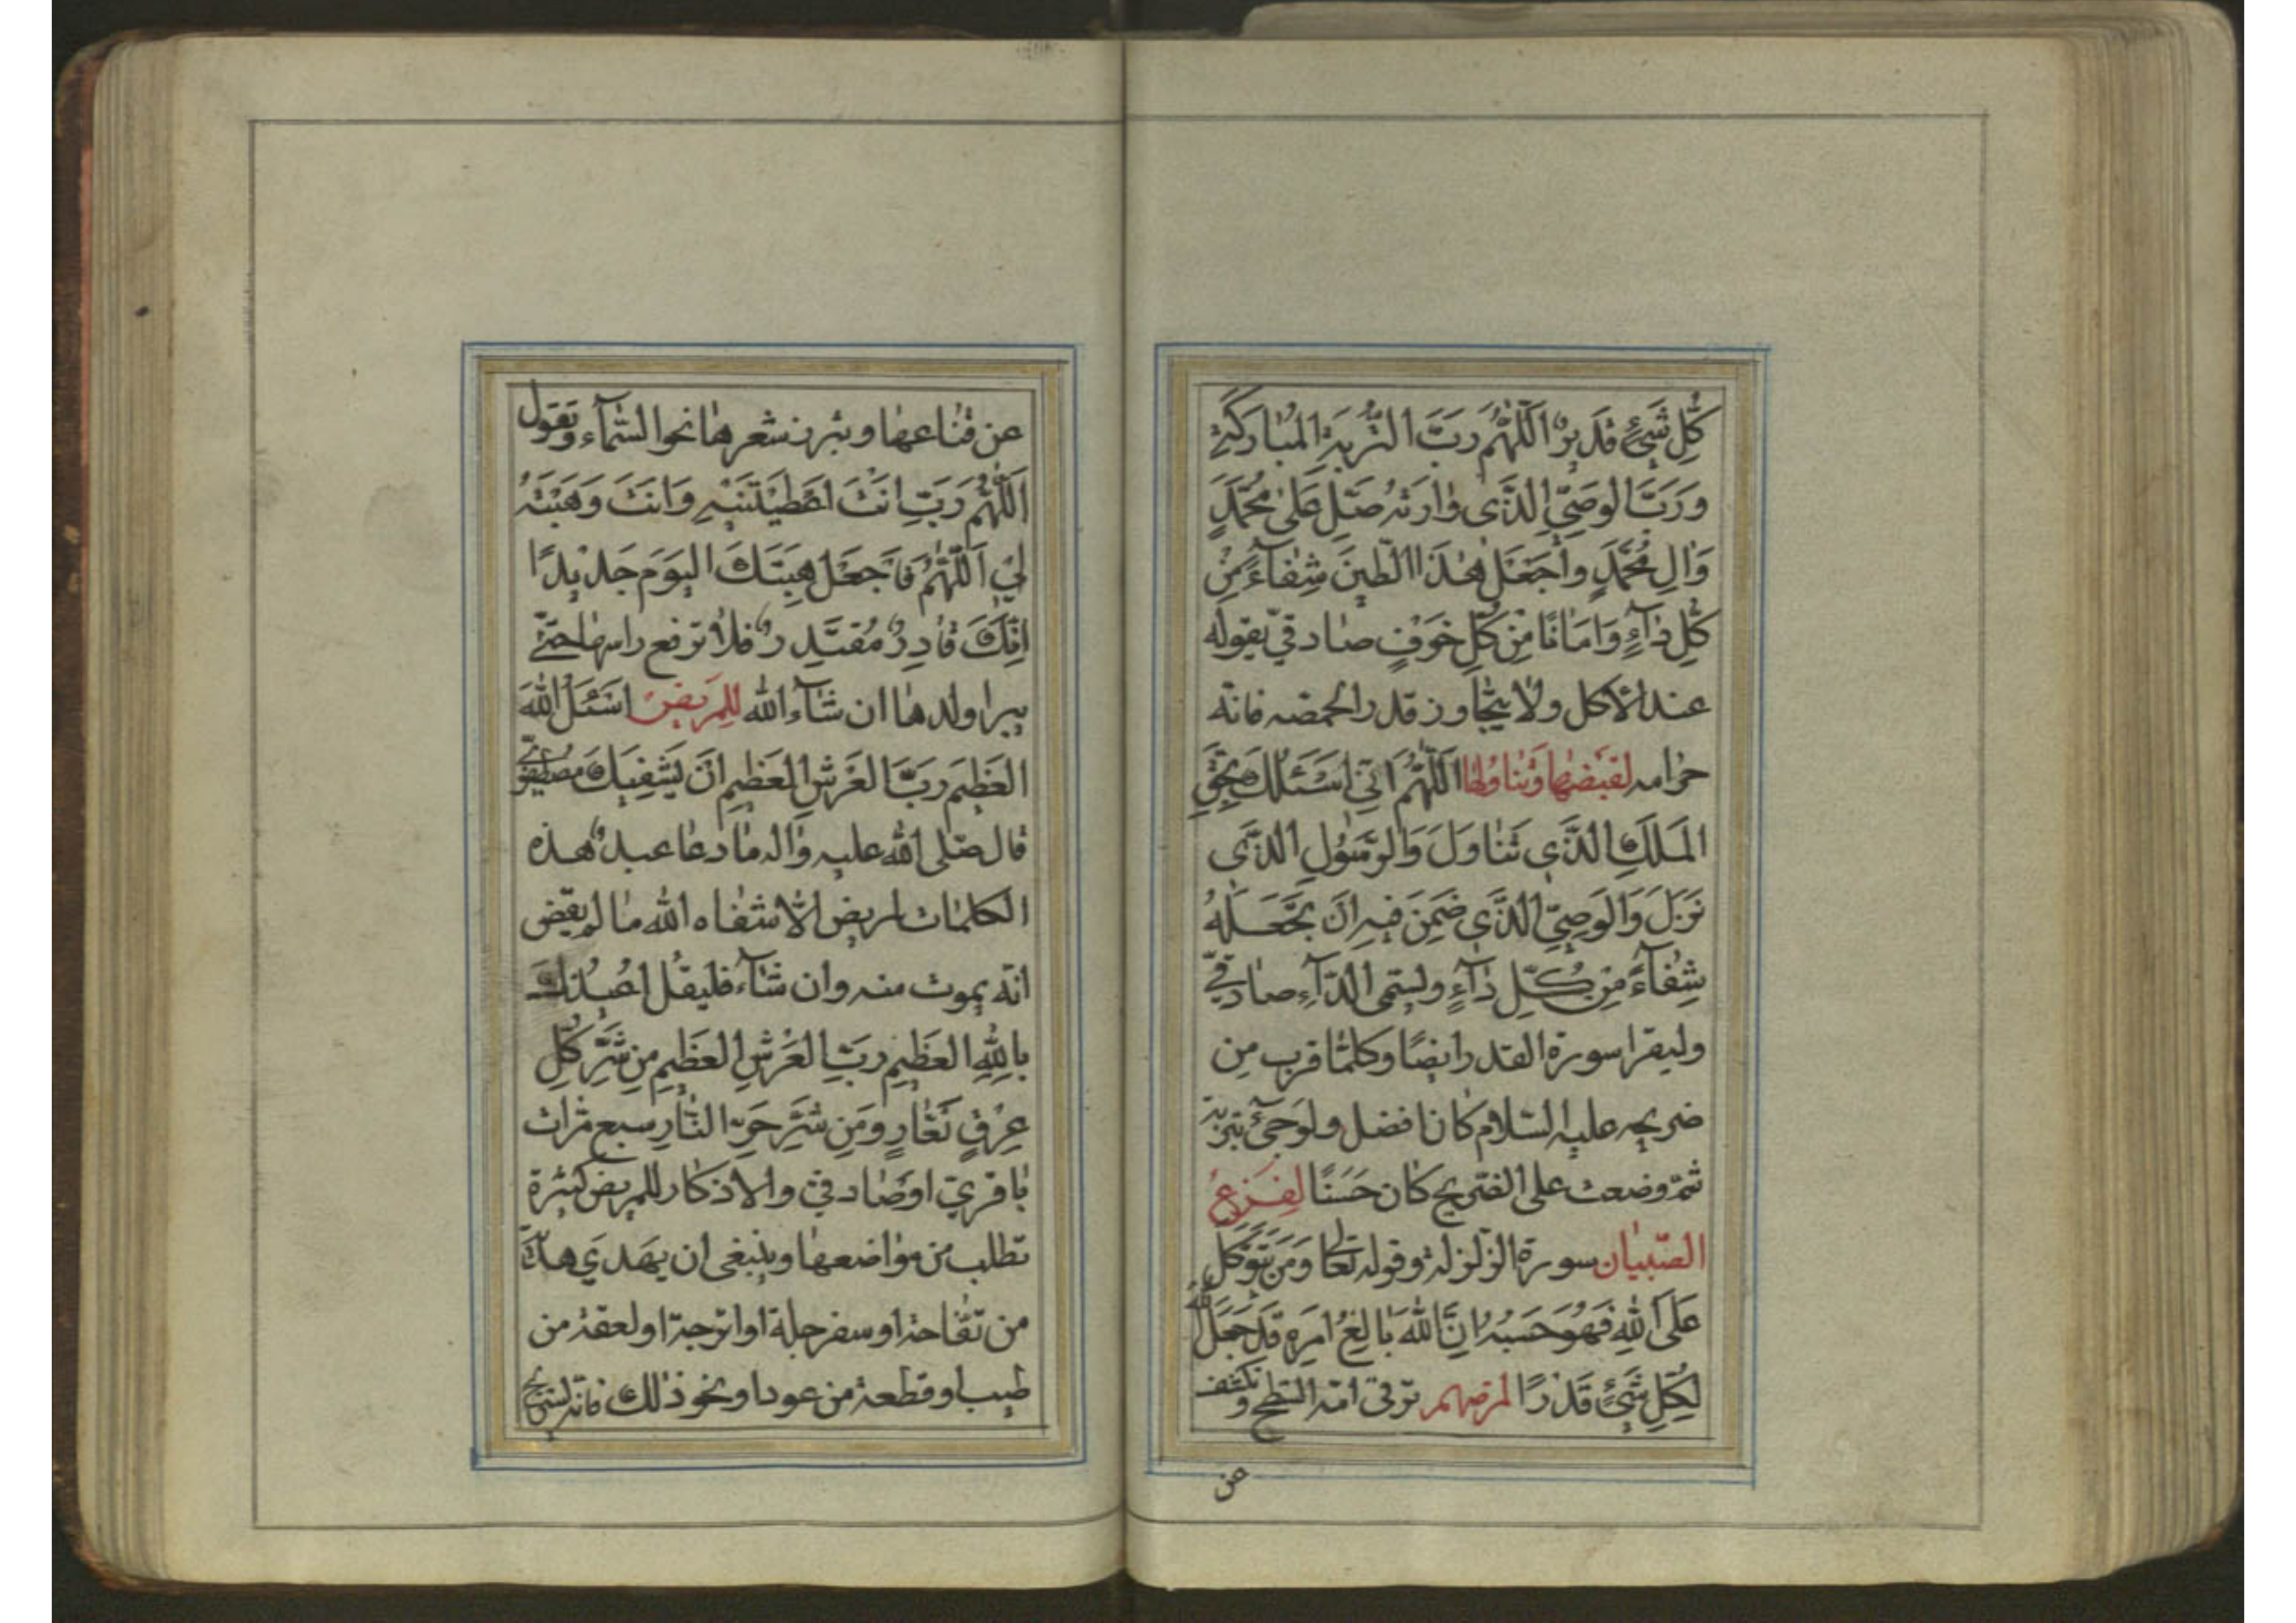 كُلِّ شَيْءٍ قَدِيرٌ اَللّٰهُمَّ رَبَّ التُّرْبَةِ الْمُبَارَكَةِ
وَرَبَّ الْوَصِيِّ الَّذِى وٰارَتْهُ صَلِّ عَلىٰ مُحَمَّدٍ
وَاٰلِ مُحَمَّدٍ وَاجْعَلْ هٰذَا الطّينَ شِفٰاءً مِنْ
كُلِّ دٰآءٍ وَاَمٰانًا مِنْ كُلِّ خَوْفٍ صٰادقيّ يقوله
عند الأكل ولا يتجٰاوز قدر الحمّصه فانّه
حرٰام لقبضهٰا وتناولهٰا اَللّٰهُمَّ اِنّي اَسْئَلُكَ بِحَقِّ
الْمَلَكِ الَّذي تَنٰاوَلَ وَالرَّسُولِ الَّذي
نَزَلَ وَالْوَصِيِّ الَّذي ضُمِّنَ فيهِ اَنْ تَجْعَلَهُ
شِفٰآءً مِنْ كُلِّ دٰآءٍ وليسمّى الدّآء صٰادقيّ
وليقرا سورة القدر ايضًا وكلّمٰا قرب من
ضريحه عليه السّلام كان افضل ولو جئ بتربة
ثمّ وضعت على الضّريح كان حَسَنًا لفزع
الصّبيٰان سورة الزّلزلة وقوله تعٰالى وَمَنْ يَتَوَكَّلْ
عَلَى اللهِ فَهُوَ حَسْبُهُ اِنَّ اللهَ بٰالِغُ اَمْرِهِ قَدْ جَعَلَ اللهُ
لِكُلِّ شَيْءٍ قَدْرًا لمرضهم ترقى امّه السّطح وتكشف
عن
عن قنٰاعهٰا وتبرز شعرهٰا نحو السّمٰآء وتقول
اَللّٰهُمَّ رَبِّ اَنْتَ اَعْطَيْتَنيهِ وَاَنْتَ وَهَبْتَهُ
لي اَللّٰهُمَّ فَاجْعَلْ هِبَتَكَ الْيَوْمَ جَديدًا
اِنَّكَ قٰادِرٌ مُقْتَدِرٌ فلا ترفع راسهٰا حتّى
يبرا ولدهٰا ان شٰآء الله للمريض اَسْئَلُ اللهَ
الْعَظيمَ رَبَّ الْعَرْشِ الْعَظيمِ اَنْ يَشْفِيَكَ مصطفويّ
قال صلّى الله عليه وٰاله مٰا دعٰا عبدٌ هذه
الكلمٰات لمريض الّا شفٰاه الله مٰا لم يقض
انّه يموت منه وان شٰآء فليقل اُعيذُكَ
بِاللهِ الْعَظيمِ رَبِّ الْعَرْشِ الْعَظيمِ مِنْ شَرِّ كُلِّ
عِرْقٍ نَعّٰارٍ وَمِنْ شَرِّ حَرِّ النّٰارِ سبع مرّات
بٰاقريّ او صٰادقيّ والأذكار للمريض كثيرة
تطلب من موٰاضعهٰا وينبغي ان يهدي هديّة
من تفّٰاحة او سفرجلة او اترجّة او لعقة من
طيب او قطعة من عود او نحو ذٰلك فانّه ليستريح